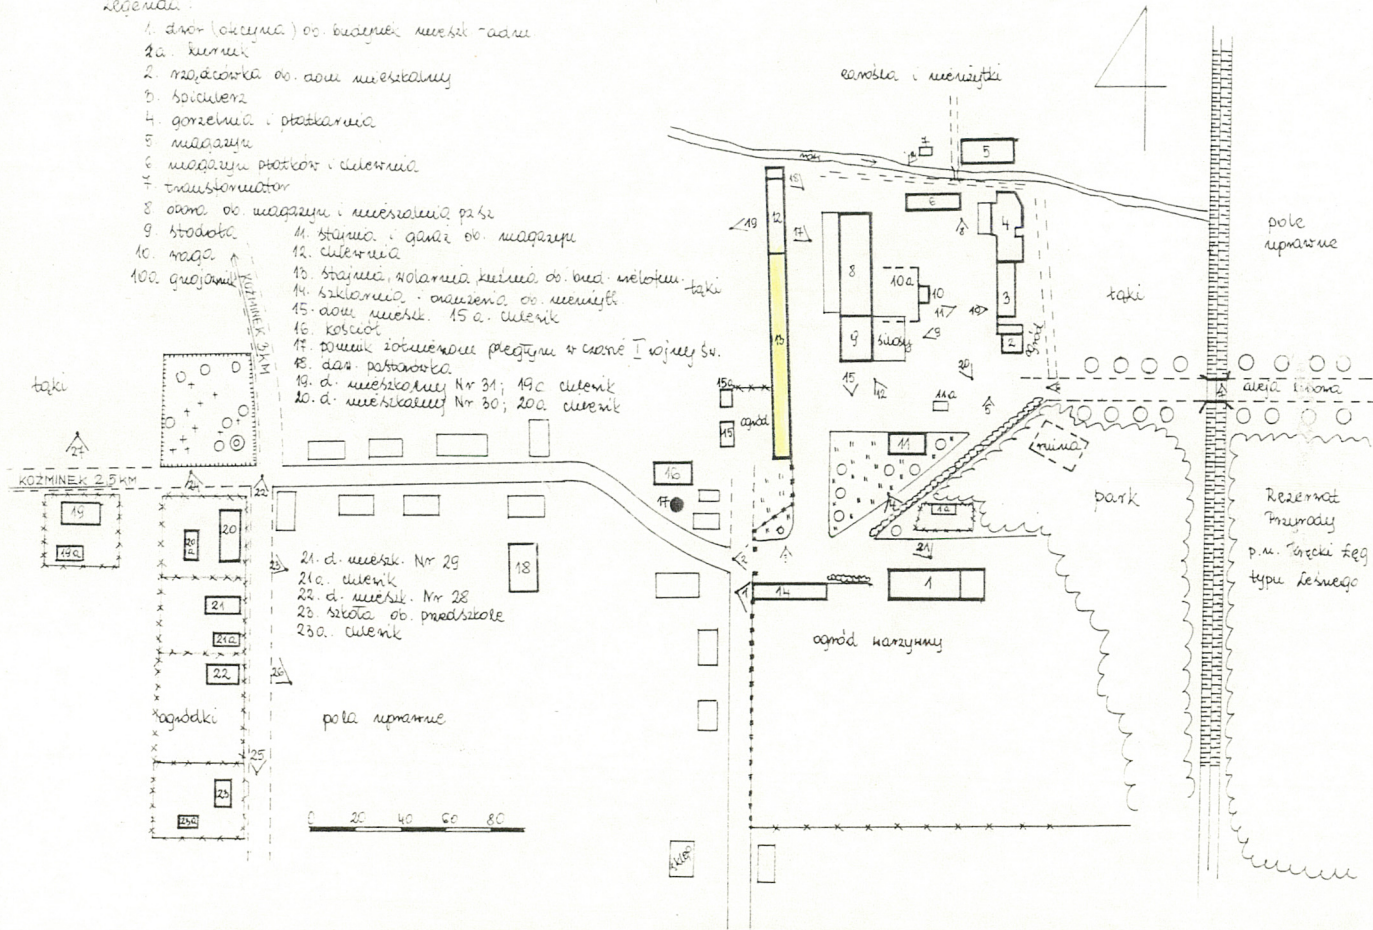 Legenda:
1. dwór (oficyna) ob. budynek mieszk-adm
1a. kurnik
2. rządcówka ob. dom mieszkalny
3. spichlerz
4. gorzelnia i płatkarnia
5. magazyn
6 magazyn płatków i chlewnia
7. transformator
8 obora ob. magazyn i mieszalnia pasz
9. stodoła
10. waga
10a gnojownik
11. stajnia i garaż ob. magazyn
12. chlewnia
13. stajnia, wolarnia, kuźnia ob. bud.
14. szklarnia - oranżeria ob. nieużytk.
15. dom mieszk. 15a. chlewik
16. kościół
17. pomnik żołnierzom poległym w czasie I wojny św.
18. daw. pastorówka
19. d. mieszkalny Nr 31; 19a chlewik
20. d. mieszkalny Nr 30; 20a chlewik
21. d. mieszk. Nr 29
21a. chlewik
22. d. mieszk. Nr 28
23. szkoła ob. przedszkole
23a. chlewik
zarośla i nieużytki
KOŹMINEK 3 KM
KOŹMINEK 2,5 KM
łąki
łąki
łąki
pole uprawne
aleja lipowa
silosy
ogród
ruina
park
Rezerwat
Przyrody
p.n. Torzecki Łęg
typu Leśnego
ogród warzywny
ogródki
pola uprawne
sklep
0 20 40 60 80
1 1a 2 3 4 5 6 7 8 9 10 10a 11 11a 12 13 14 15 15a 16 17 18 19 19a 20 20a 21 21a 22 23 23a